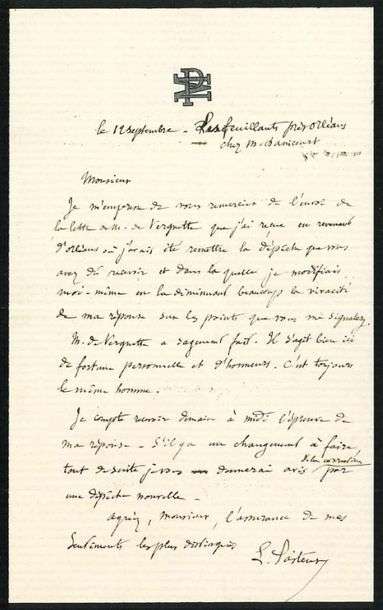 le 12 septembre - Les feuillants près Orléans
chez M.
Monsieur
Je m'empresse de vous remercier de l'envoi de
la lettre de M. de Vergnette que j'ai reçue en revenant
d'Orléans où j'avais été remettre la dépêche que vous
avez dû recevoir et dans laquelle je modifiais
moi-même en la diminuant beaucoup la vivacité
de ma réponse sur les points que vous me signalez.
M. de Vergnette a sagement fait. Il s'agit bien ici
de fortune personnelle et d'honneurs. C'est toujours
le même homme.
Je compte recevoir demain à midi l'épreuve de
ma réponse - S'il y a un changement à faire
de la correction
tout de suite je vous donnerai avis par
une dépêche nouvelle -
agréez, Monsieur, l'assurance de mes
sentiments les plus distingués
L. Pasteur